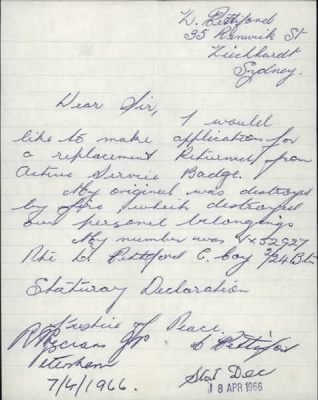 L. Pettiford
35 Renwick St
Leichhardt
Sydney.
Dear Sir,
I would
like to make application for
a replacement Returned from
Active Service Badge.
My original was destroyed
by fire which destroyed
our personal belongings
My number was VX52927
Pte L. Pettiford C. Coy 2/24 Btn
Staturay Declaration
Justice of Peace
JP
Petersham
7/4/1966.
L Pettiford
Stat Dec
18 APR 1966